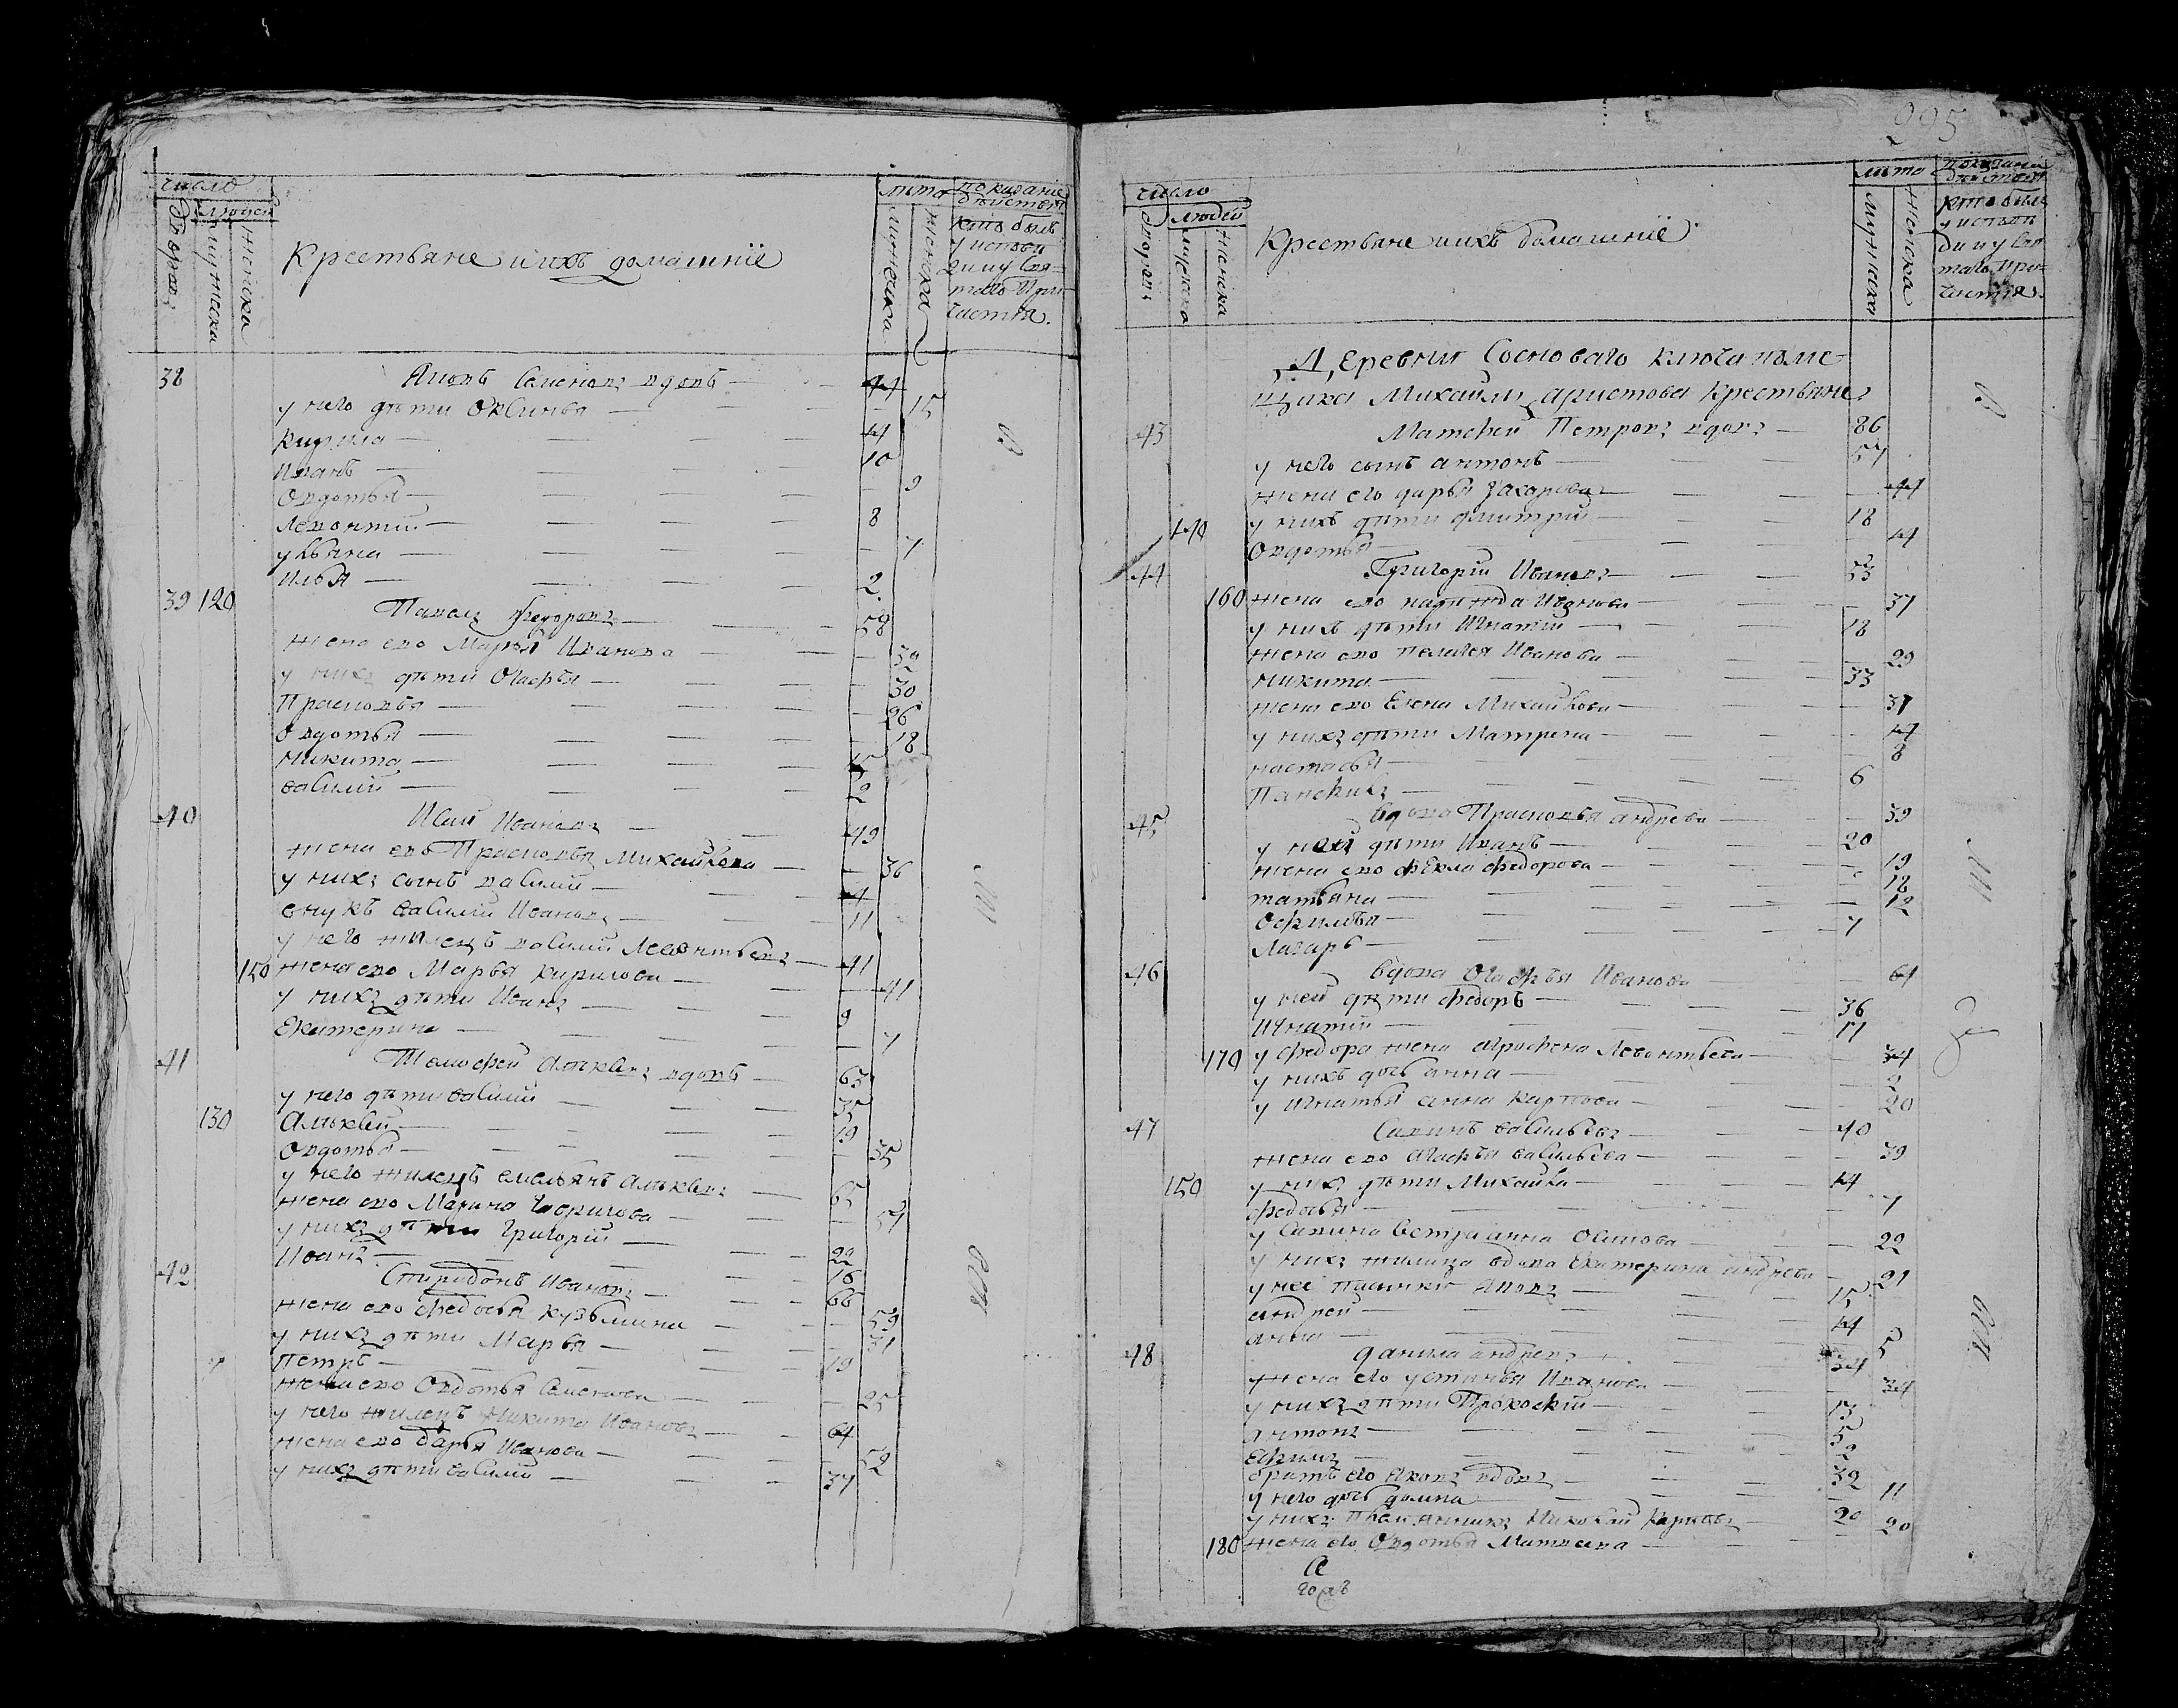 число
людей
дворовъ
мужеска
женска
Крестьяне и ихъ домашнїе
лѣта
мужеска
женска
показание действа
кто былъ
у испове
ди и у Свя
таго При
частїя.
38 Яковъ Семеновъ вдовъ — 44
у него дѣти Оксинья — 15
Кирила — 14
Иванъ — 10
Овдотья — 9
Леонтий — 8
ульяна — 7
Илья — 2
39 120 Павелъ Федоровъ — 58
жена ево Марья Иванова — 39
у нихъ дѣти Огафья — 30
Прасковья — 26
Овдотья — 18
Никита — 15
василий — 2
40 Исай Ивановъ — 49
жена ево Прасковья Михайлова — 36
у нихъ сынъ василий — 4
внукъ василий Ивановъ — 11
у него жилецъ василий Леонтьевъ — 41
150 жена ево Марья кирилова — 41
у нихъ дѣти Иванъ — 9
Екатерина — 7
41 Тимофей Алѣксѣевъ вдовъ — 63
у него дѣти василий — 35
130 Алѣксѣй — 19
Овдотья — 35
у него жилецъ емельянъ Алѣксѣевъ — 65
жена ево Марина Гаврилова — 57
у нихъ дѣти Григорий — 22
Иванъ — 16
42 Спиридонъ Ивановъ — 66
жена ево федосья кузьмина — 59
у нихъ дѣти Марья — 31
Петръ — 19
жена ево Овдотья Семенова — 25
у него жилецъ Никита Ивановъ — 64
жена ево дарья Иванова — 52
у нихъ дѣти василий — 37
295
число
людей
дворовъ
мужеска
женска
Крестьяне и ихъ домашнїе
лѣта
мужеска
женска
показание действа
кто былъ
у испове
ди и у Свя
таго При
частїя.
Деревни Сосноваго ключа поме
щика Михайлы аристова Крестьяне
43 Матфей Петровъ вдовъ — 86
у него сынъ антонъ — 57
жена его дарья Захарова — 44
140 у нихъ дѣти дмитрий — 18
Овдотья — 14
44 Григорий Ивановъ — 53
160 жена ево надежда Иванова — 37
у нихъ дѣти Игнатий — 18
жена ево пелагея Иванова — 29
никита — 33
жена ево Елена Михайлова — 31
у нихъ дѣти Матрена — 14
настасья — 8
Панфилъ — 6
45 вдова Прасковья андрева — 39
у ней дѣти Иванъ — 20
жена ево фекла федорова — 19
татьяна — 18
Офимья — 12
Лазарь — 7
46 вдова Огафья Иванова — 64
у ней дѣти федоръ — 36
Игнатий — 17
170 у федора жена аграфена Леонтьева — 34
у нихъ дочь анна — 2
у Игнатья анна карпова — 20
47 Савинъ васильевъ — 40
жена ево агафья васильева — 39
150 у нихъ дѣти Михайла — 14
федосья — 7
у Савина сестра анна Осипова — 22
у нихъ жилица вдова Екатерина андрева — 21
у неё пасынки Яковъ — 15
андрей — 14
анна — 5
48 данила андревъ — 34
жена его устинья Иванова — 34
у нихъ дѣти Прокофий — 13
антонъ — 5
Ефимъ — 2
братъ его Яковъ вдовъ — 32
у него дочь домна — 11
у нихъ племянникъ Николай карповъ — 20
180 жена его Овдотья Матвеева — 20